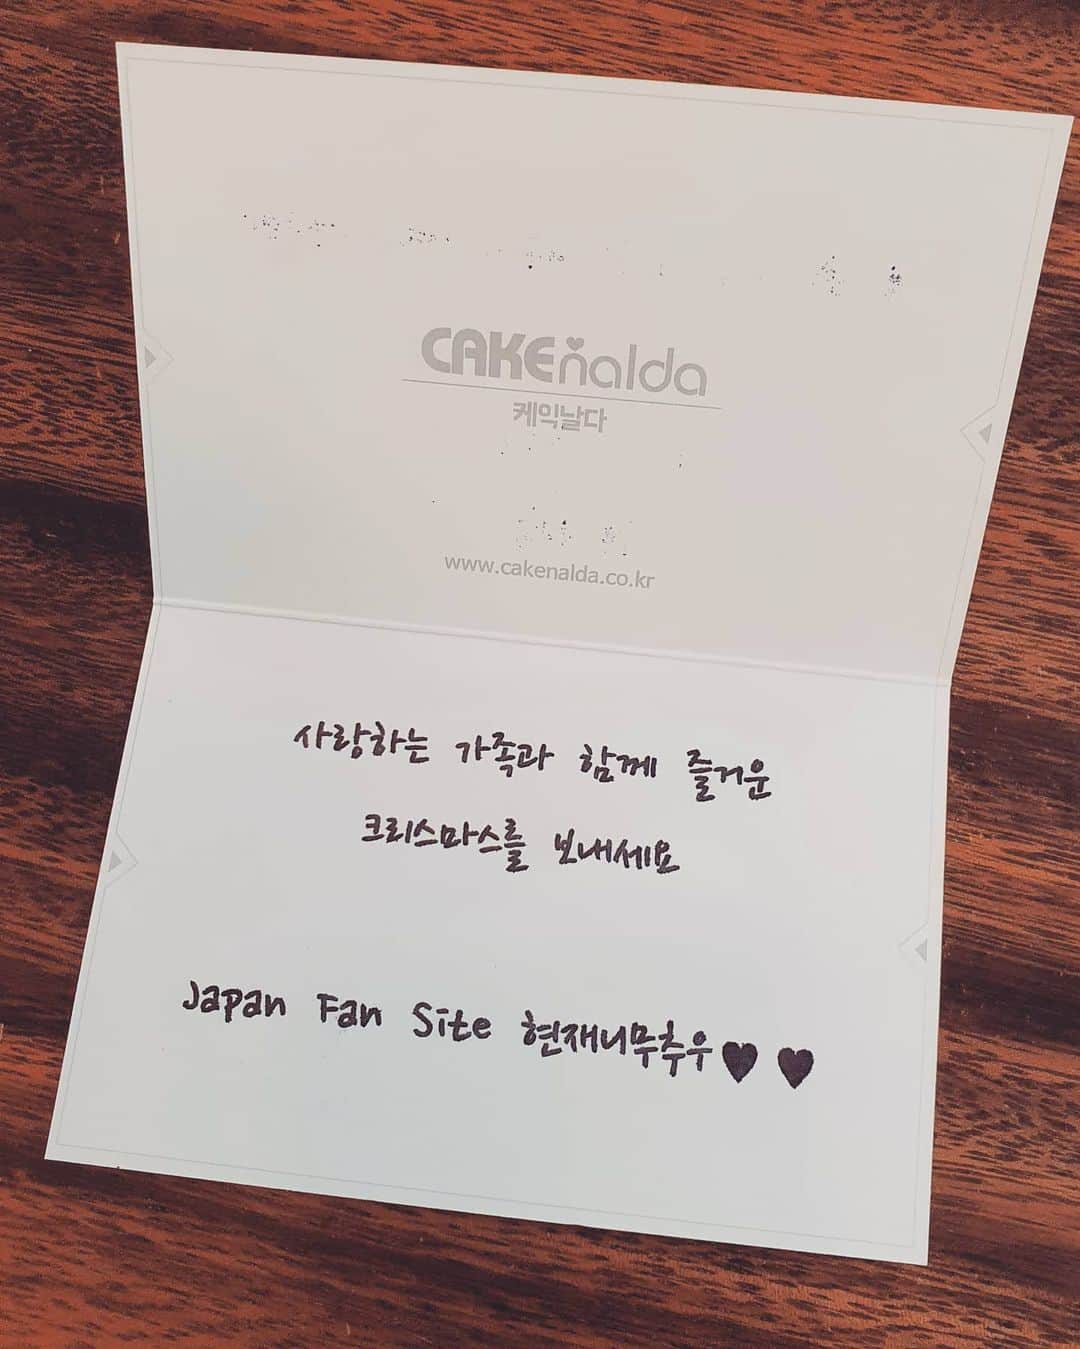 CAKEnalda
케익날다
www.cakenalda.co.kr
사랑하는 가족과 함께 즐거운
크리스마스를 보내세요
Japan Fan Site 현재니무추우♥ ♥